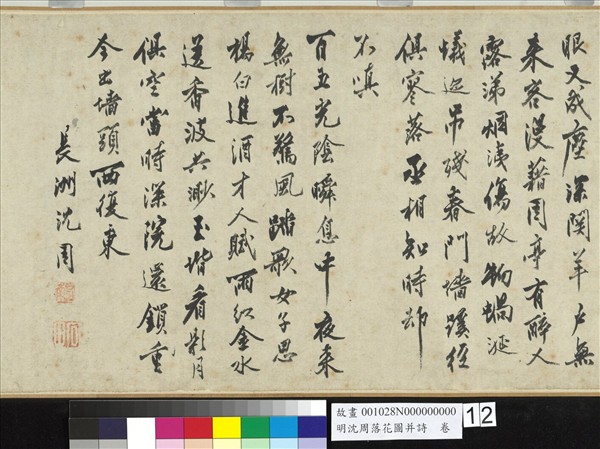 眼又成塵深関羊戶無
来客漫藉周亭有醉人
露涕烟洟傷故物蝸涎
蟻迹吊殘春門墻蹊徑
俱寥落丞相知時却
不嗔
百五光陰瞬息中夜来
無樹不驚風踏歌女子思
楊白進酒才人賦雨紅金水
送香波共渺玉堦看影月
俱空當時深院還鎖重
今出墻頭西復東
長洲沈周
故畫 001028N000000000
明沈周落花圖并詩 卷
12